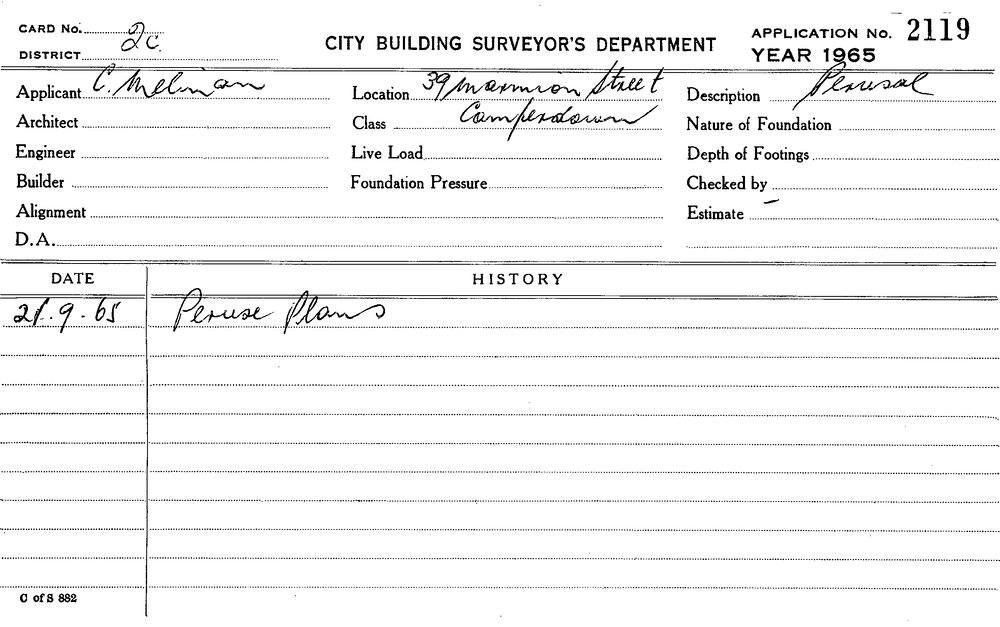 CARD No. 2c.
DISTRICT
CITY BUILDING SURVEYOR'S DEPARTMENT
APPLICATION No. 2119
YEAR 1965
Applicant C.
Location 39 Marmion Street
Description Perusal
Architect
Class Camperdown
Nature of Foundation
Engineer
Live Load
Depth of Footings
Builder
Foundation Pressure
Checked by
Alignment
Estimate –
D.A.
DATE
HISTORY
21.9.65 Peruse Plans
C of S 882